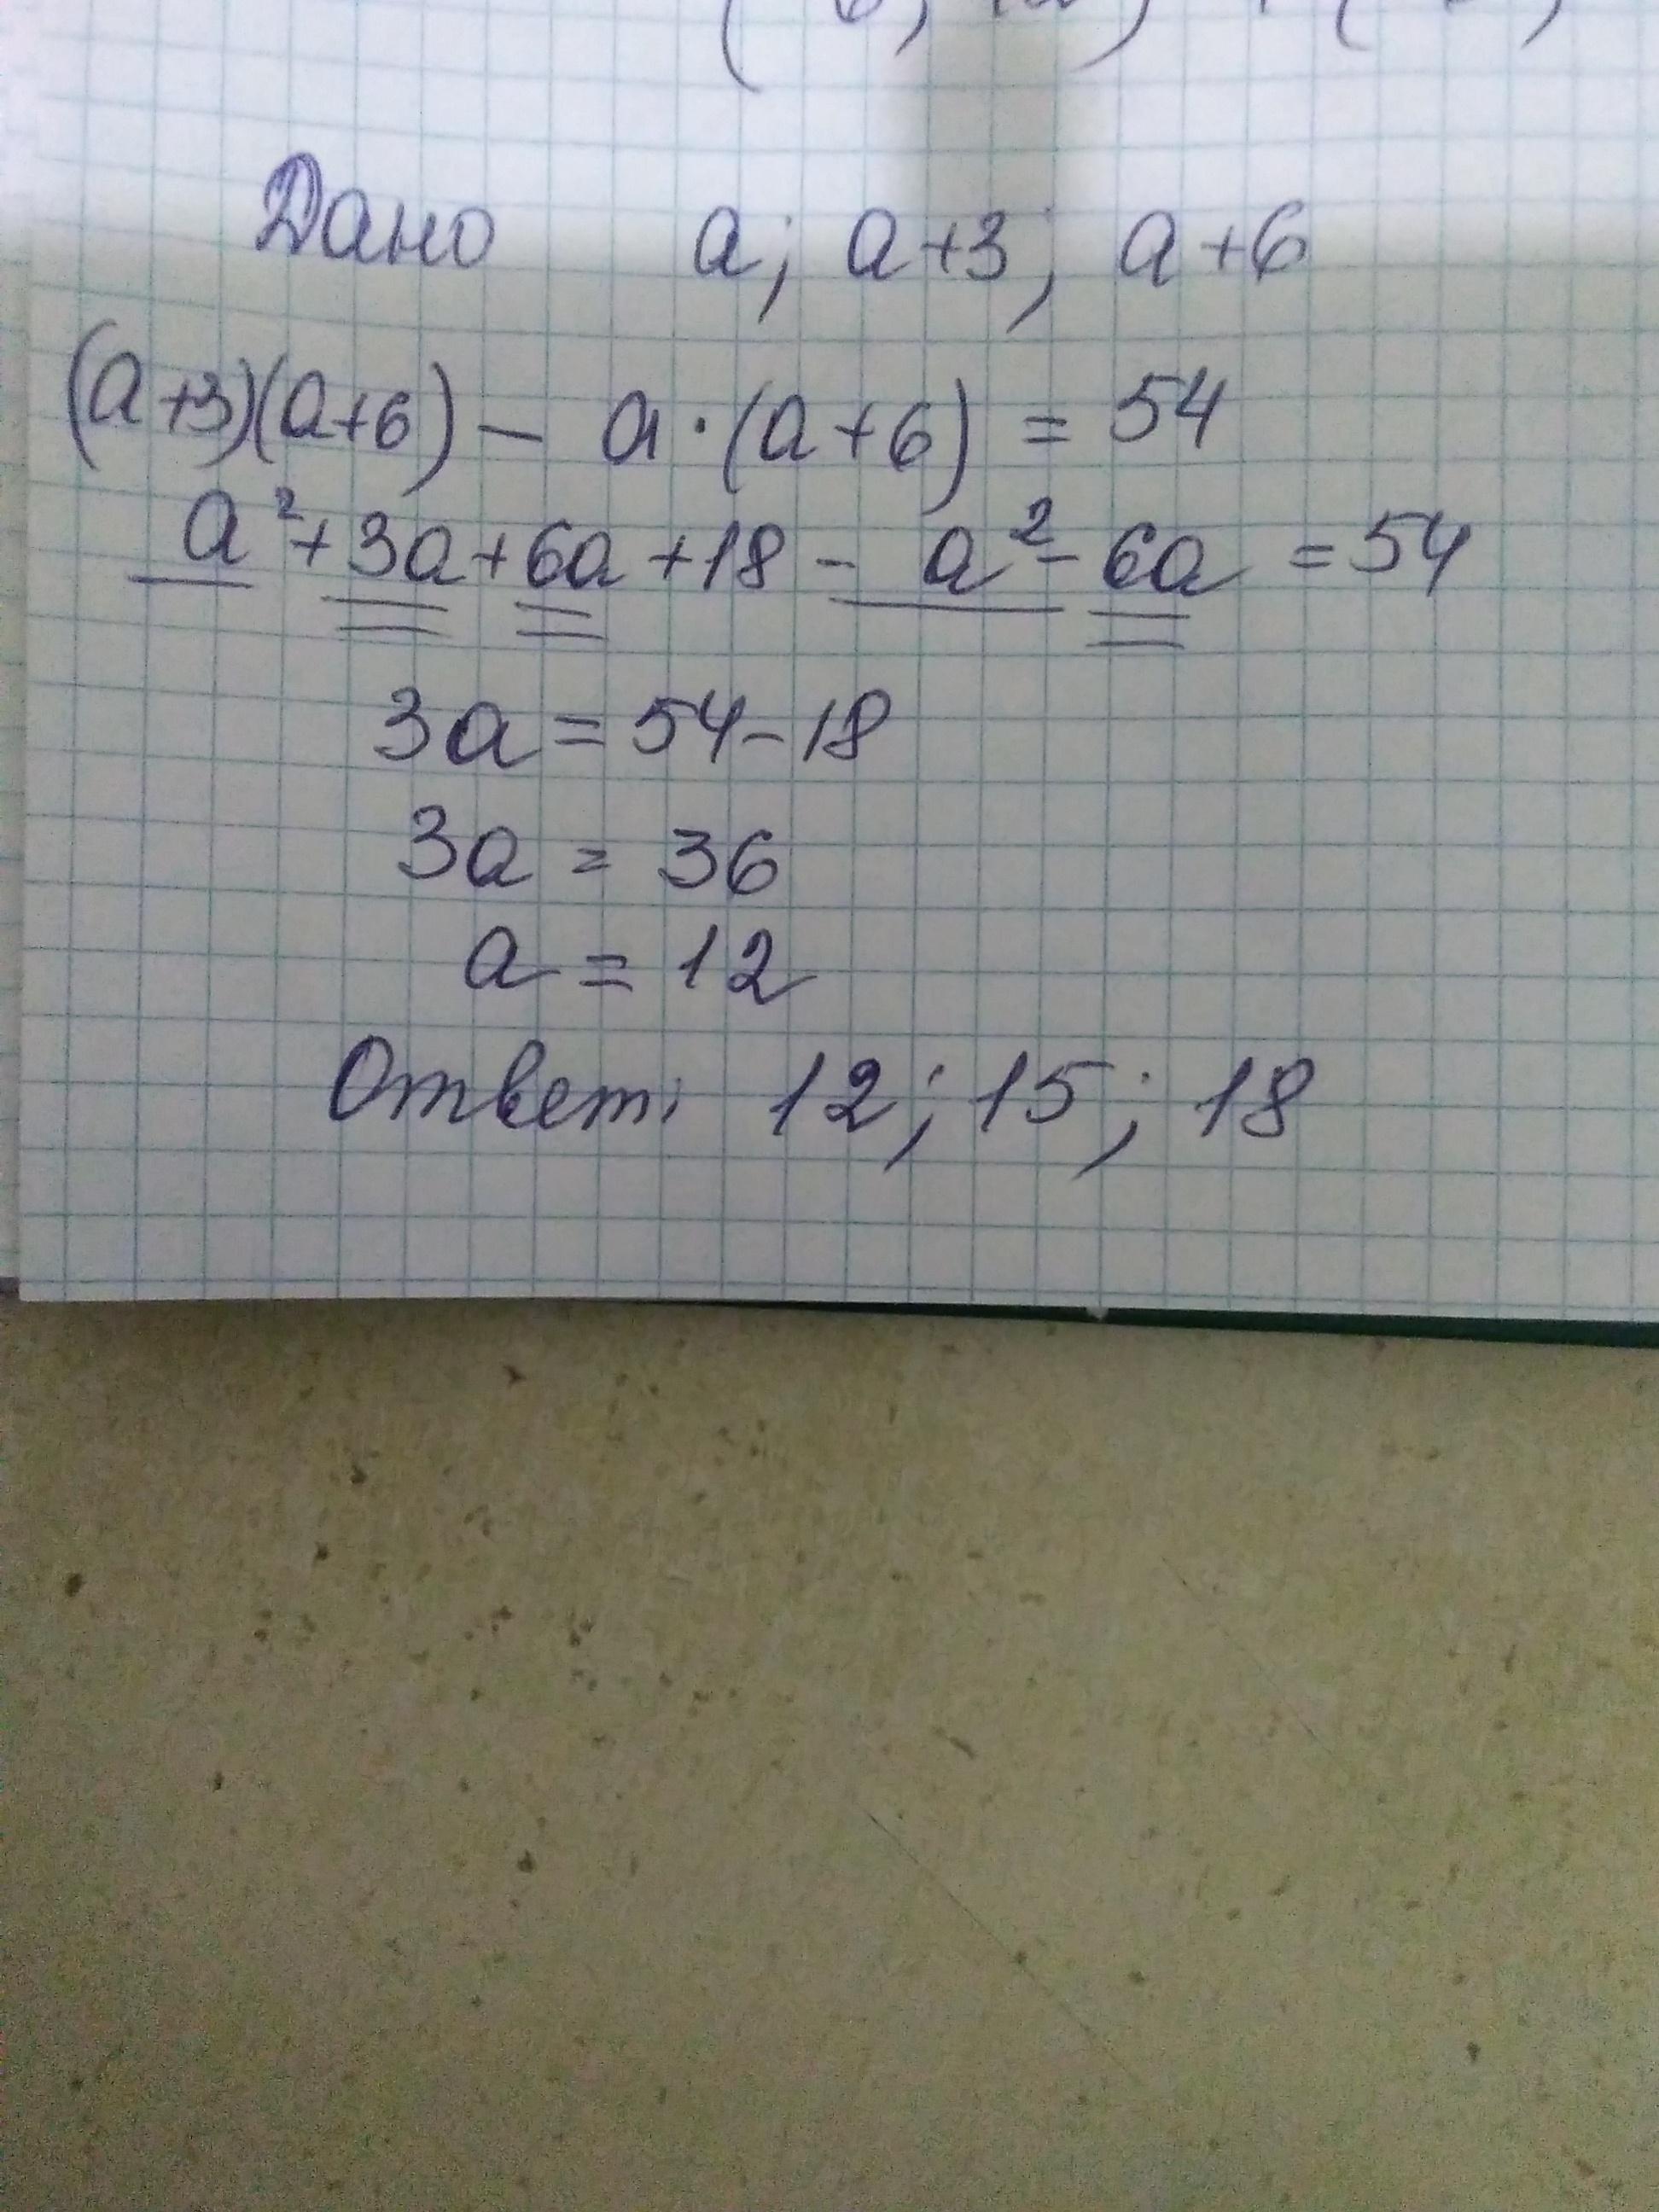 Дано a; a+3; a+6
(a+3)(a+6) - a·(a+6) = 54
a²+3a+6a+18 - a² - 6a = 54
3a = 54-18
3a = 36
a = 12
Ответ: 12; 15; 18